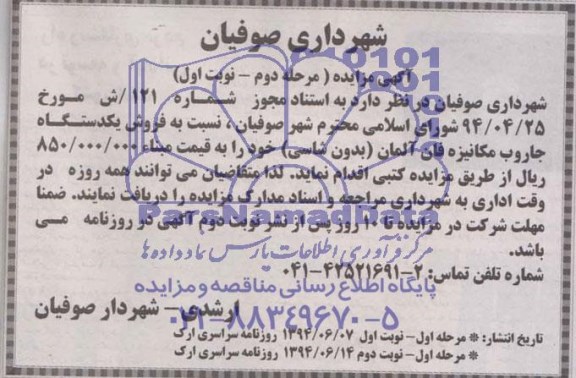 شهرداری صوفیان
آگهی مزایده ( مرحله دوم - نوبت اول)
شهرداری صوفیان در نظر دارد به استناد مجوز شماره ۱۲۱ /ش مورخ
۹۴/۰۴/۲۵ شورای اسلامی محترم شهر صوفیان ، نسبت به فروش یکدستگاه
جاروب مکانیزه فان آلمان (بدون شاسی) خود را به قیمت مبناء ۸۵۰/۰۰۰/۰۰۰
ریال از طریق مزایده کتبی اقدام نماید. لذا متقاضیان می توانند همه روزه در
وقت اداری به شهرداری مراجعه و اسناد مدارک مزایده را دریافت نمایند. ضمنا
مهلت شرکت در مزایده تا ۱۰ روز پس از نشر نوبت دوم آگهی در روزنامه می
باشد.
ParsNamadData
مرکز فرآوری اطلاعات پارس نماد داده ها
شماره تلفن تماس: ۲-۴۲۵۲۱۶۹۱-۰۴۱
پایگاه اطلاع رسانی مناقصه و مزایده
ارشدی - شهردار صوفیان
۰۲۱-۸۸۳۴۹۶۷۰-۵
تاریخ انتشار: * مرحله اول- نوبت اول ۱۳۹۴/۰۶/۰۷ روزنامه سراسری ارک
* مرحله اول- نوبت دوم ۱۳۹۴/۰۶/۱۴ روزنامه سراسری ارک